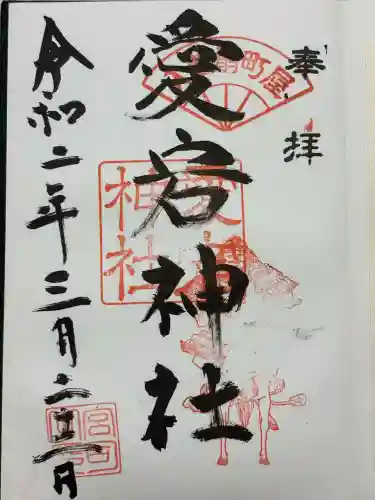 奉拝
町屋
愛宕神社
愛宕
神社
令和二年三月二十二日